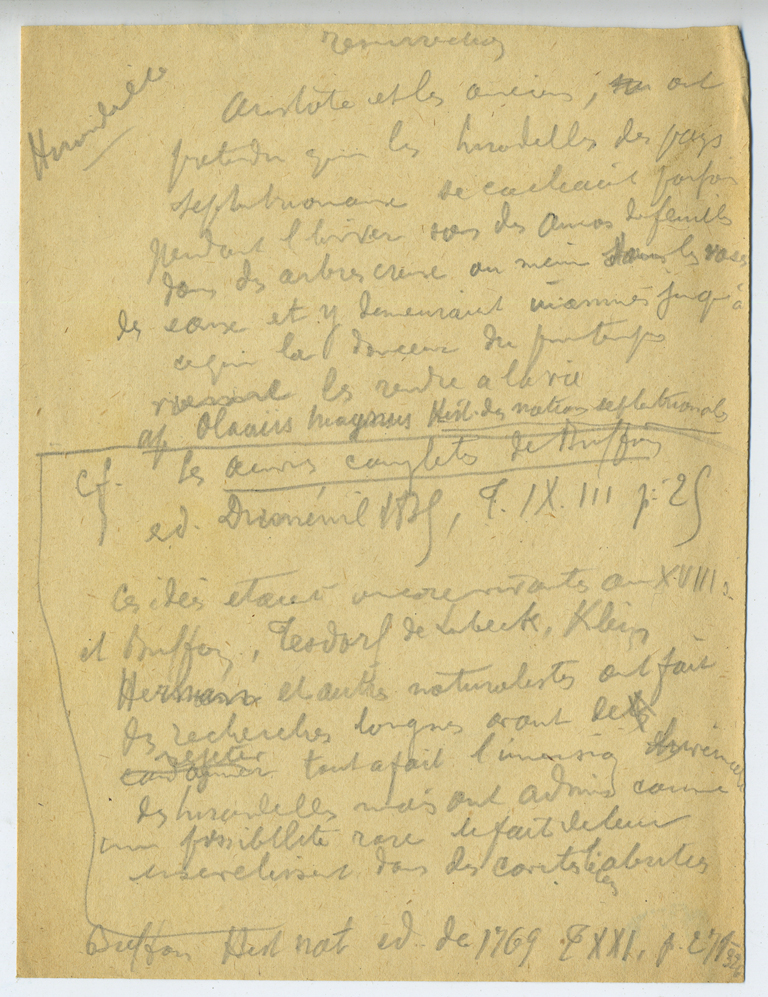 resurrection
Hirondelle
Aristote et les anciens, ont
pretendu que les hirondelles des pays
septentrionaux se cachait parfois
pendant l'hiver sous des amas de feuilles
dans des arbres creux ou meme dans les
les eaux et y demeuraient inanimés jusqu'à
la douceur du printemps
les rendre a la vie
ap Olaus Magnus Hist. des nations septentrionales
Cf. les œuvres completes de Buffon
ed. Dumenil 1835, T. IX. III p. 25
Ces idées etait encore vivantes au XVIII s.
et Buffon, de Lubeck, Klein
Herman et autres naturalistes ont fait
des recherches longues avant de
rejeter
tout a fait l'immersion
des hirondelles mais ont admis comme
une possibilité rare le fait de leur
dans des cavités abritées
Buffon Hist nat ed. de 1769 T XXI, p. 271